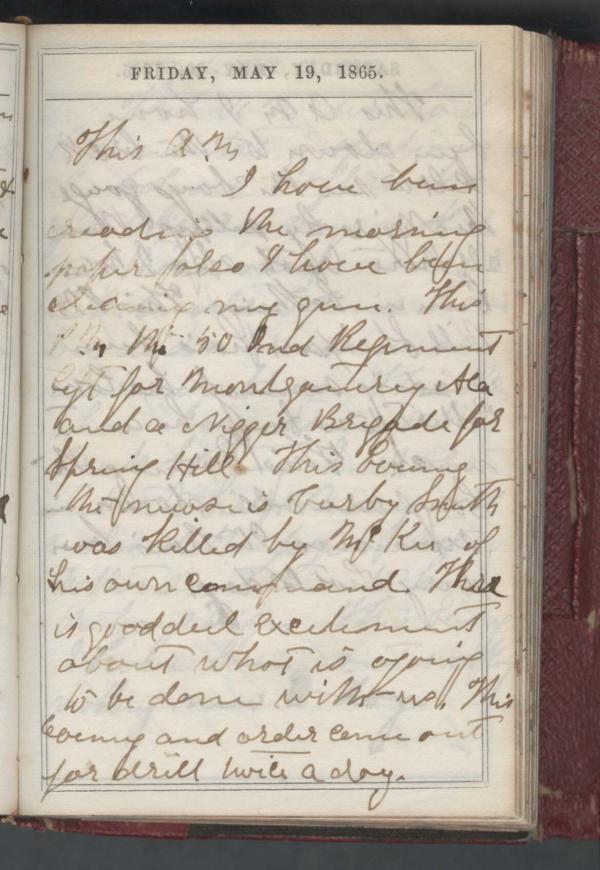 FRIDAY, MAY 19, 1865.
This A.M
I have been
reading the morning
paper also I have been
cleaning my gun. This
P.M the 50 Ind Regiment
left for Montgomery Ala
and a Nigger Brigade for
Spring Hill This Evening
the news is Curby Smith
was killed by of
his own command. There
is good deel excitement
about what is agoing
to be done with us. This
Evening and order come out
for drill twice a day.